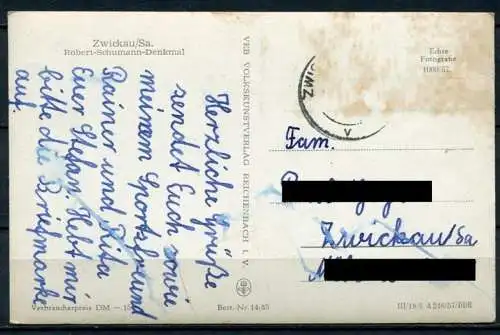 Zwickau/Sa.
Robert-Schumann-Denkmal
Herzliche Grüße
sendet Euch sowie
meinem Sportsfreund
Rainer und Rita
Euer Stefan. Hebt mir
bitte die Briefmarke
auf.
Verbraucherpreis DM
Best.-Nr. 14/65
VEB VOLKSKUNSTVERLAG REICHENBACH I. V.
Echte
Fotografie
Fam.
Zwickau/Sa
III/18/6 A 240/57/DDR